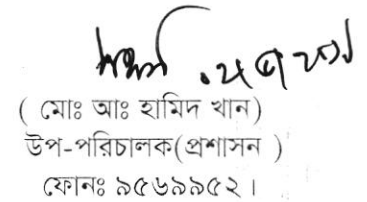 ( মোঃ আঃ হামিদ খান)
উপ-পরিচালক(প্রশাসন )
ফোনঃ ৯৫৬৯৯৫২।